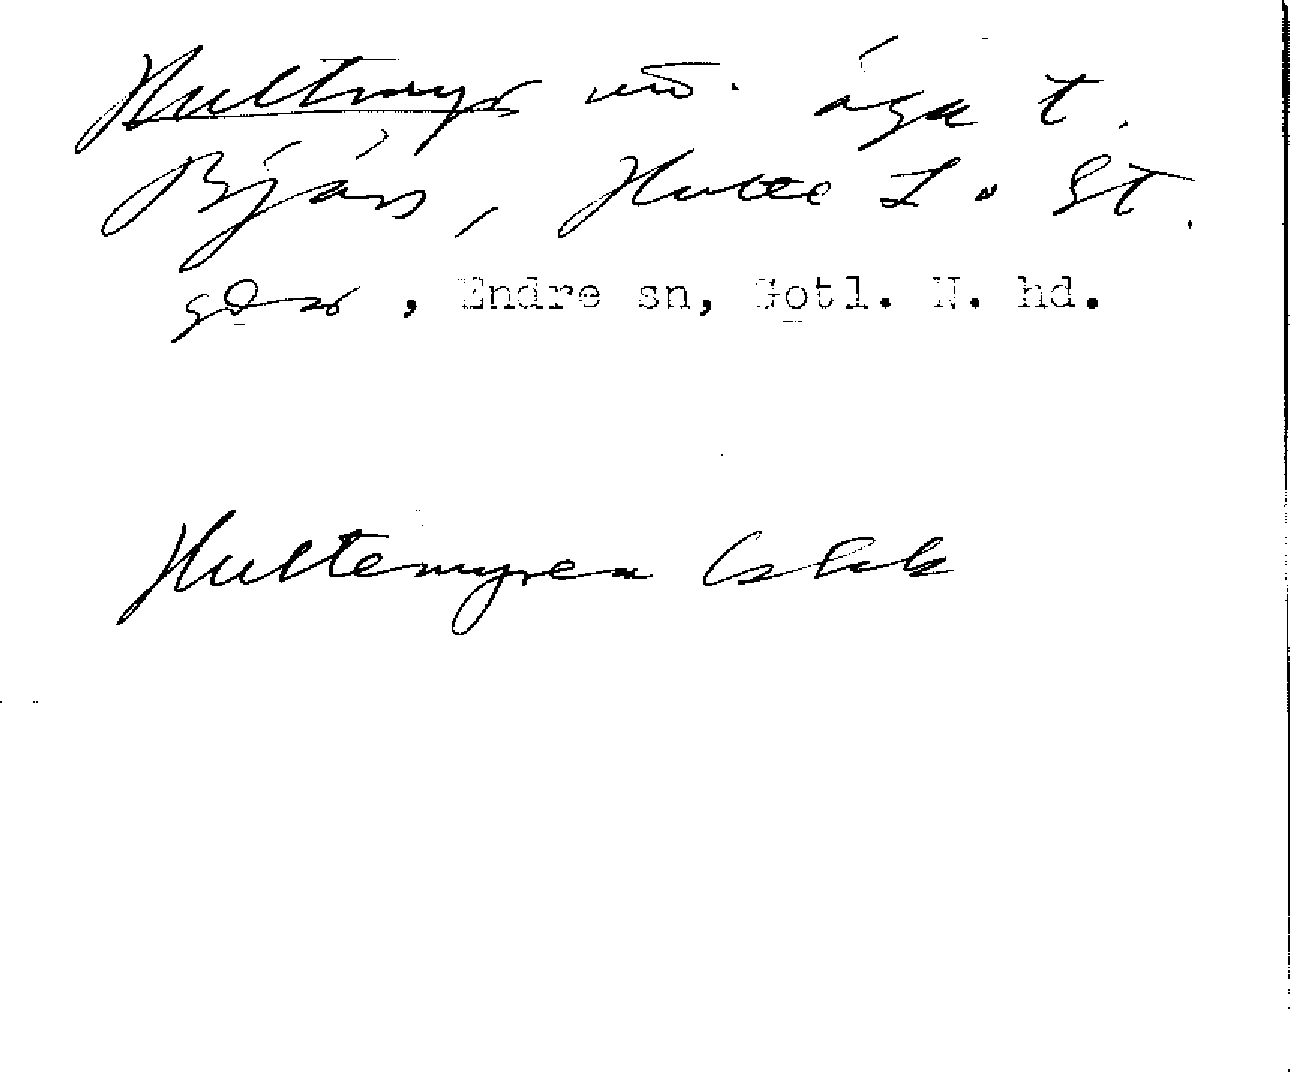 Hultmyr äga t.
Bjärs, Hulte L o St.
gdar, Endre sn, Gotl. N. hd.
Hultemyren